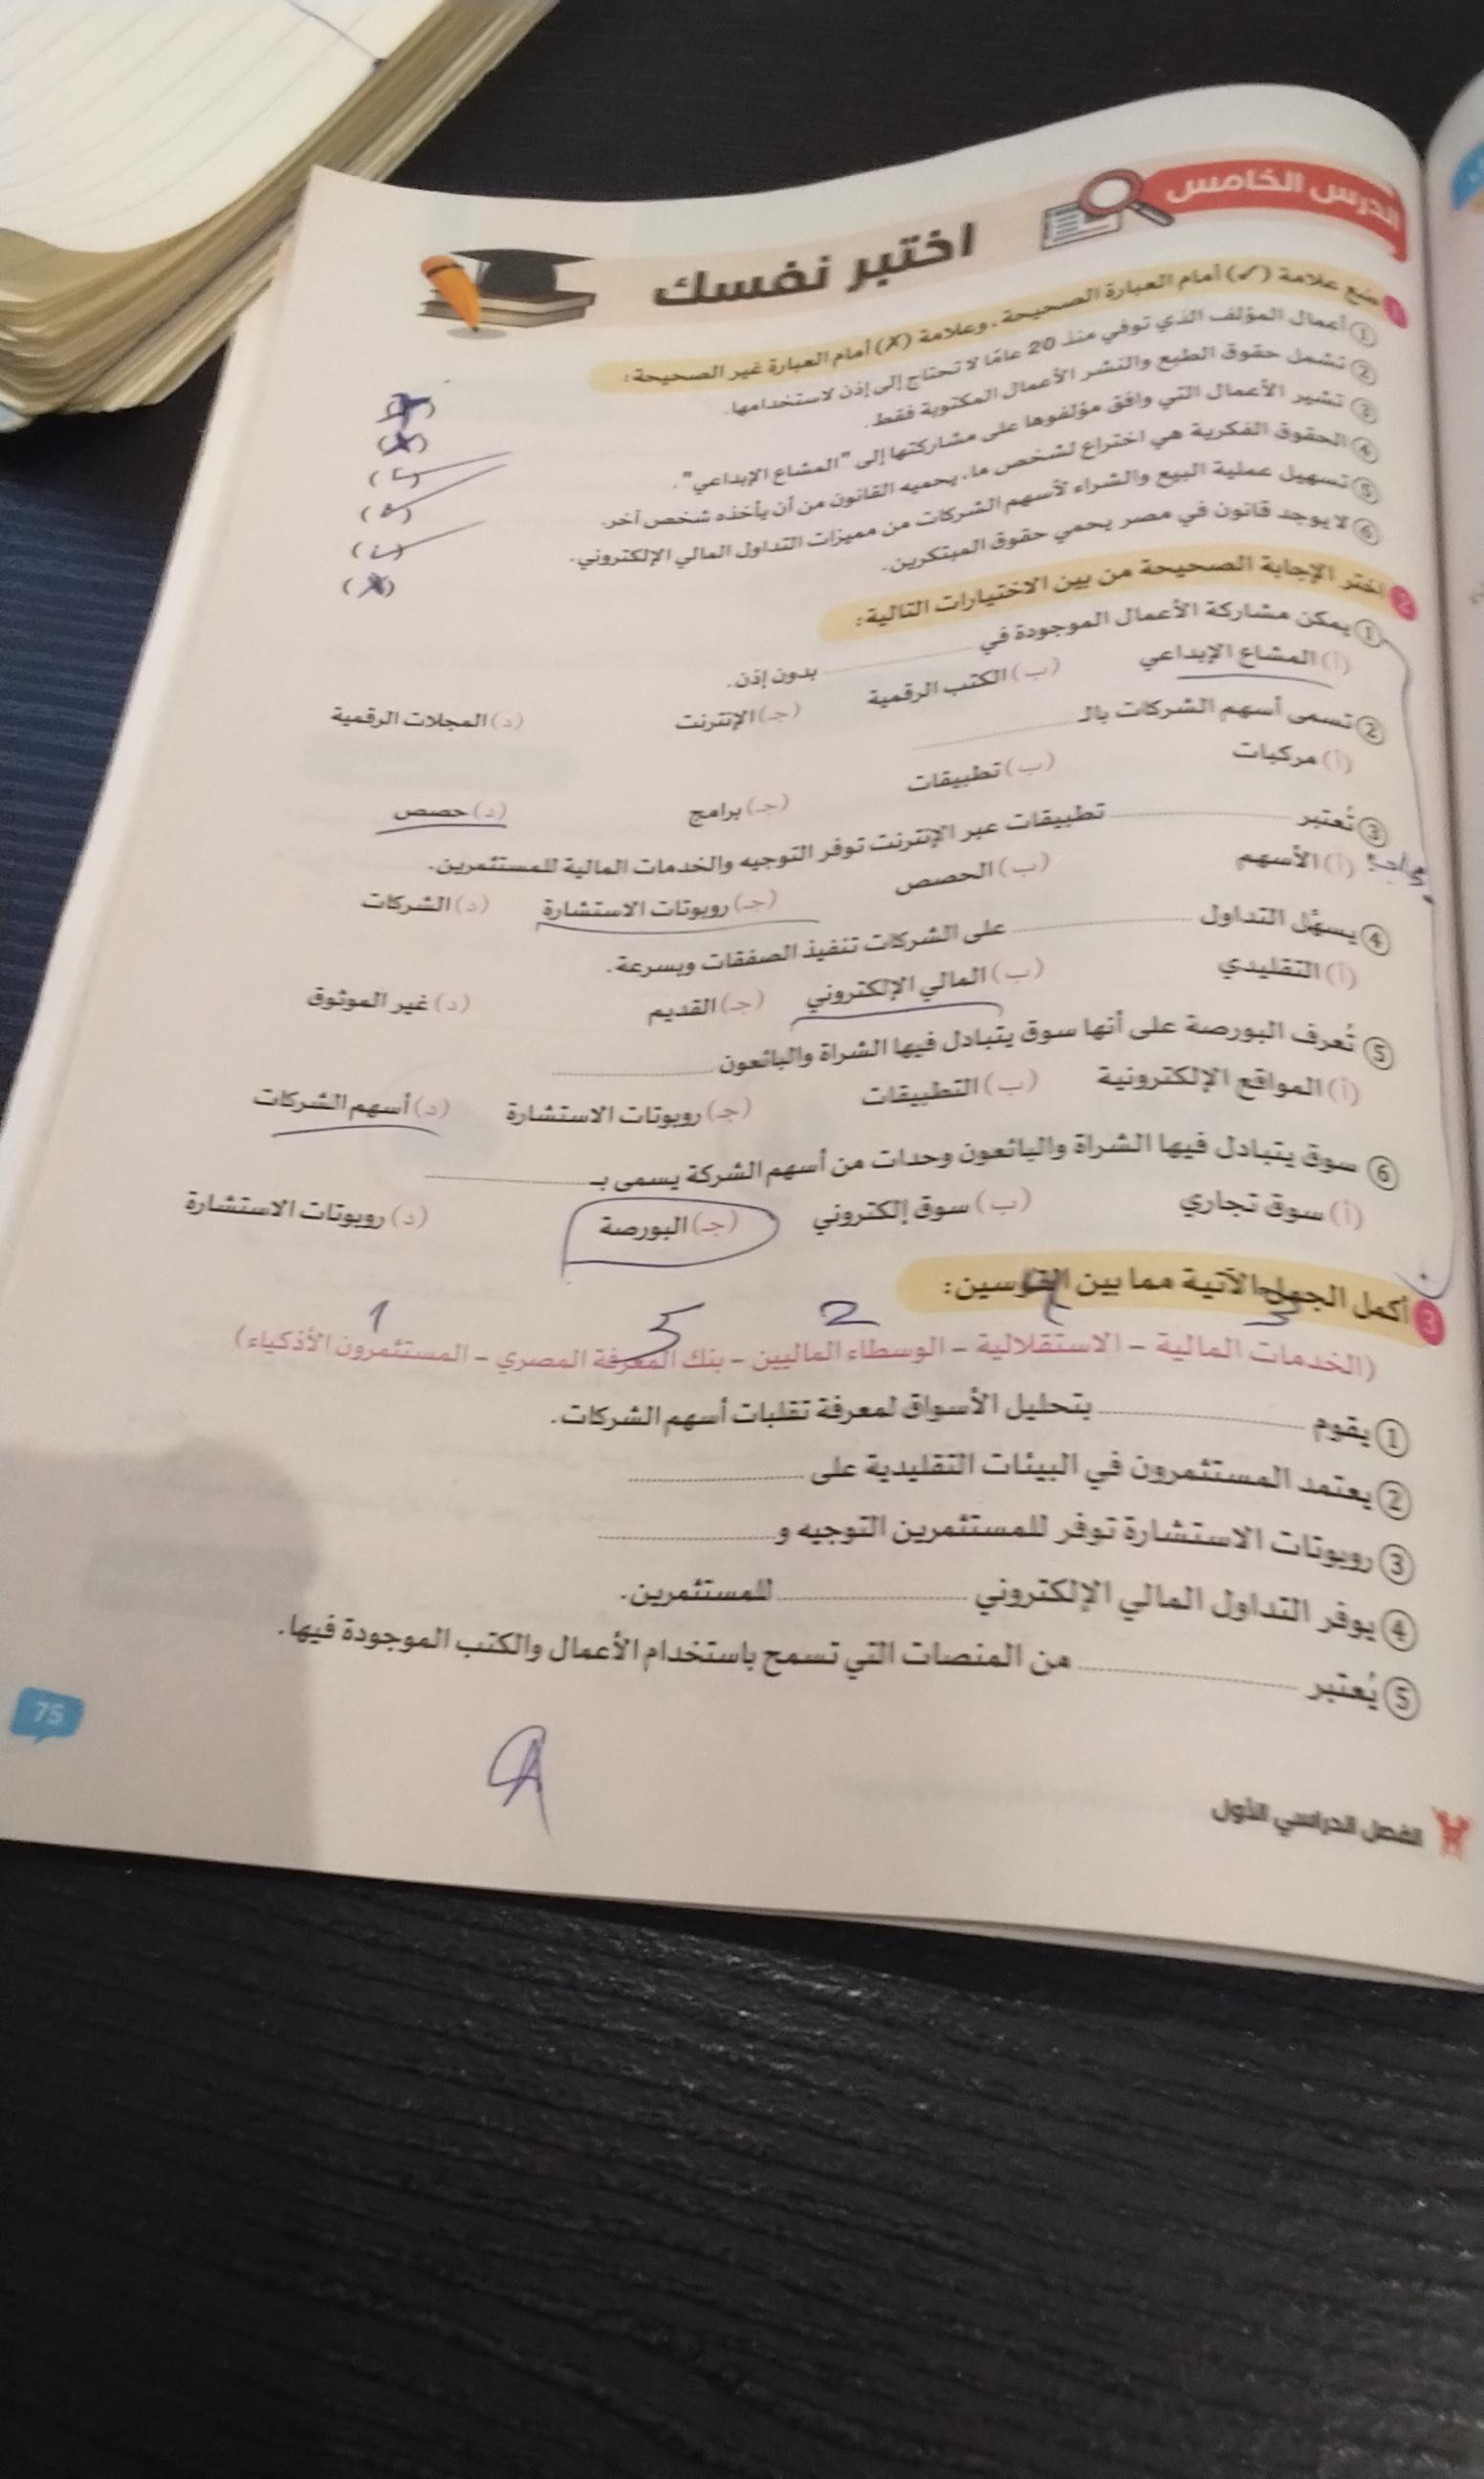 الدرس الخامس
اختبر نفسك
1 ضع علامة (✓) أمام العبارة الصحيحة، وعلامة (✗) أمام العبارة غير الصحيحة:
① أعمال المؤلف الذي توفي منذ 20 عامًا لا تحتاج إلى إذن لاستخدامها. (✗)
② تشمل حقوق الطبع والنشر الأعمال المكتوبة فقط. (✗)
③ تشير الأعمال التي وافق مؤلفوها على مشاركتها إلى "المشاع الإبداعي". (✓)
④ الحقوق الفكرية هي اختراع لشخص ما، يحميه القانون من أن يأخذه شخص آخر. (✓)
⑤ تسهيل عملية البيع والشراء لأسهم الشركات من مميزات التداول المالي الإلكتروني. (✓)
⑥ لا يوجد قانون في مصر يحمي حقوق المبتكرين. (✗)
2 اختر الإجابة الصحيحة من بين الاختيارات التالية:
① يمكن مشاركة الأعمال الموجودة في ........ بدون إذن.
(أ) المشاع الإبداعي (ب) الكتب الرقمية (جـ) الإنترنت (د) المجلات الرقمية
② تسمى أسهم الشركات بالـ ........
(أ) مركبات (ب) تطبيقات (جـ) برامج (د) حصص
③ تُعتبر ........ تطبيقات عبر الإنترنت توفر التوجيه والخدمات المالية للمستثمرين.
(أ) الأسهم (ب) الحصص (جـ) روبوتات الاستشارة (د) الشركات
④ يسهّل التداول ........ على الشركات تنفيذ الصفقات وبسرعة.
(أ) التقليدي (ب) المالي الإلكتروني (جـ) القديم (د) غير الموثوق
⑤ تُعرف البورصة على أنها سوق يتبادل فيها الشراة والبائعون ........
(أ) المواقع الإلكترونية (ب) التطبيقات (جـ) روبوتات الاستشارة (د) أسهم الشركات
⑥ سوق يتبادل فيها الشراة والبائعون وحدات من أسهم الشركة يسمى بـ ........
(أ) سوق تجاري (ب) سوق إلكتروني (جـ) البورصة (د) روبوتات الاستشارة
3 أكمل الجمل الآتية مما بين القوسين:
3 4 2 5 1
(الخدمات المالية – الاستقلالية – الوسطاء الماليين – بنك المعرفة المصري – المستثمرون الأذكياء)
① يقوم ........ بتحليل الأسواق لمعرفة تقلبات أسهم الشركات.
② يعتمد المستثمرون في البيئات التقليدية على ........
③ روبوتات الاستشارة توفر للمستثمرين التوجيه و ........
④ يوفر التداول المالي الإلكتروني ........ للمستثمرين.
⑤ يُعتبر ........ من المنصات التي تسمح باستخدام الأعمال والكتب الموجودة فيها.
75
الفصل الدراسي الأول